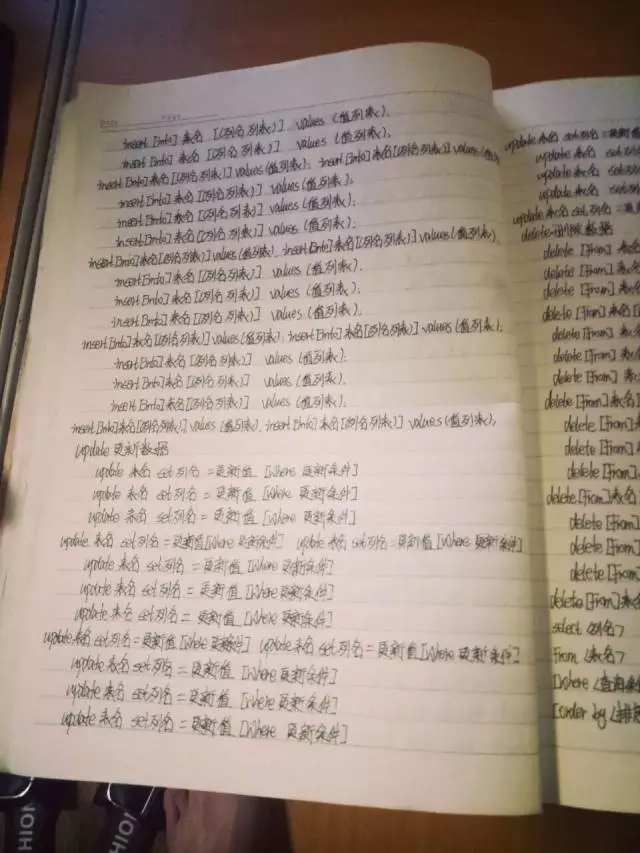 insert [into] 表名 [(列名列表)] values (值列表);
insert [into] 表名 [(列名列表)] values (值列表);
insert [into] 表名 [(列名列表)] values (值列表); insert [into] 表名 [(列名列表)] values (值列表)
insert [into] 表名 [(列名列表)] values (值列表);
insert [into] 表名 [(列名列表)] values (值列表);
insert [into] 表名 [(列名列表)] values (值列表);
insert [into] 表名 [(列名列表)] values (值列表); insert [into] 表名 [(列名列表)] values (值列表);
insert [into] 表名 [(列名列表)] values (值列表);
insert [into] 表名 [(列名列表)] values (值列表);
insert [into] 表名 [(列名列表)] values (值列表);
insert [into] 表名 [(列名列表)] values (值列表); insert [into] 表名 [(列名列表)] values (值列表);
insert [into] 表名 [(列名列表)] values (值列表);
insert [into] 表名 [(列名列表)] values (值列表);
insert [into] 表名 [(列名列表)] values (值列表);
insert [into] 表名 [(列名列表)] values (值列表); insert [into] 表名 [(列名列表)] values (值列表);
update 更新数据
update 表名 set 列名 = 更新值 [Where 更新条件]
update 表名 set 列名 = 更新值 [Where 更新条件]
update 表名 set 列名 = 更新值 [Where 更新条件]
update 表名 set 列名 = 更新值 [Where 更新条件] update 表名 set 列名 = 更新值 [Where 更新条件]
update 表名 set 列名 = 更新值 [Where 更新条件]
update 表名 set 列名 = 更新值 [Where 更新条件]
update 表名 set 列名 = 更新值 [Where 更新条件]
update 表名 set 列名 = 更新值 [Where 更新条件] update 表名 set 列名 = 更新值 [Where 更新条件]
update 表名 set 列名 = 更新值 [Where 更新条件]
update 表名 set 列名 = 更新值 [Where 更新条件]
update 表名 set 列名 = 更新值 [Where 更新条件]
update 表名 set 列名 = 更新值
update 表名 set
update 表名 set
update 表名 set
update 表名 set 列名 =
delete 删除数据
delete [from] 表名
delete [from] 表名
delete [from] 表名
delete [from] 表
delete [from] 表
delete [from] 表
delete [from] 表
delete [from] 表名
delete [from]
delete [from]
delete [from]
delete [from] 表名
delete [from]
delete [from]
delete [from]
delete [from] 表名
select <列名>
from <表名>
[where <查询条
[order by <排
HION
HION